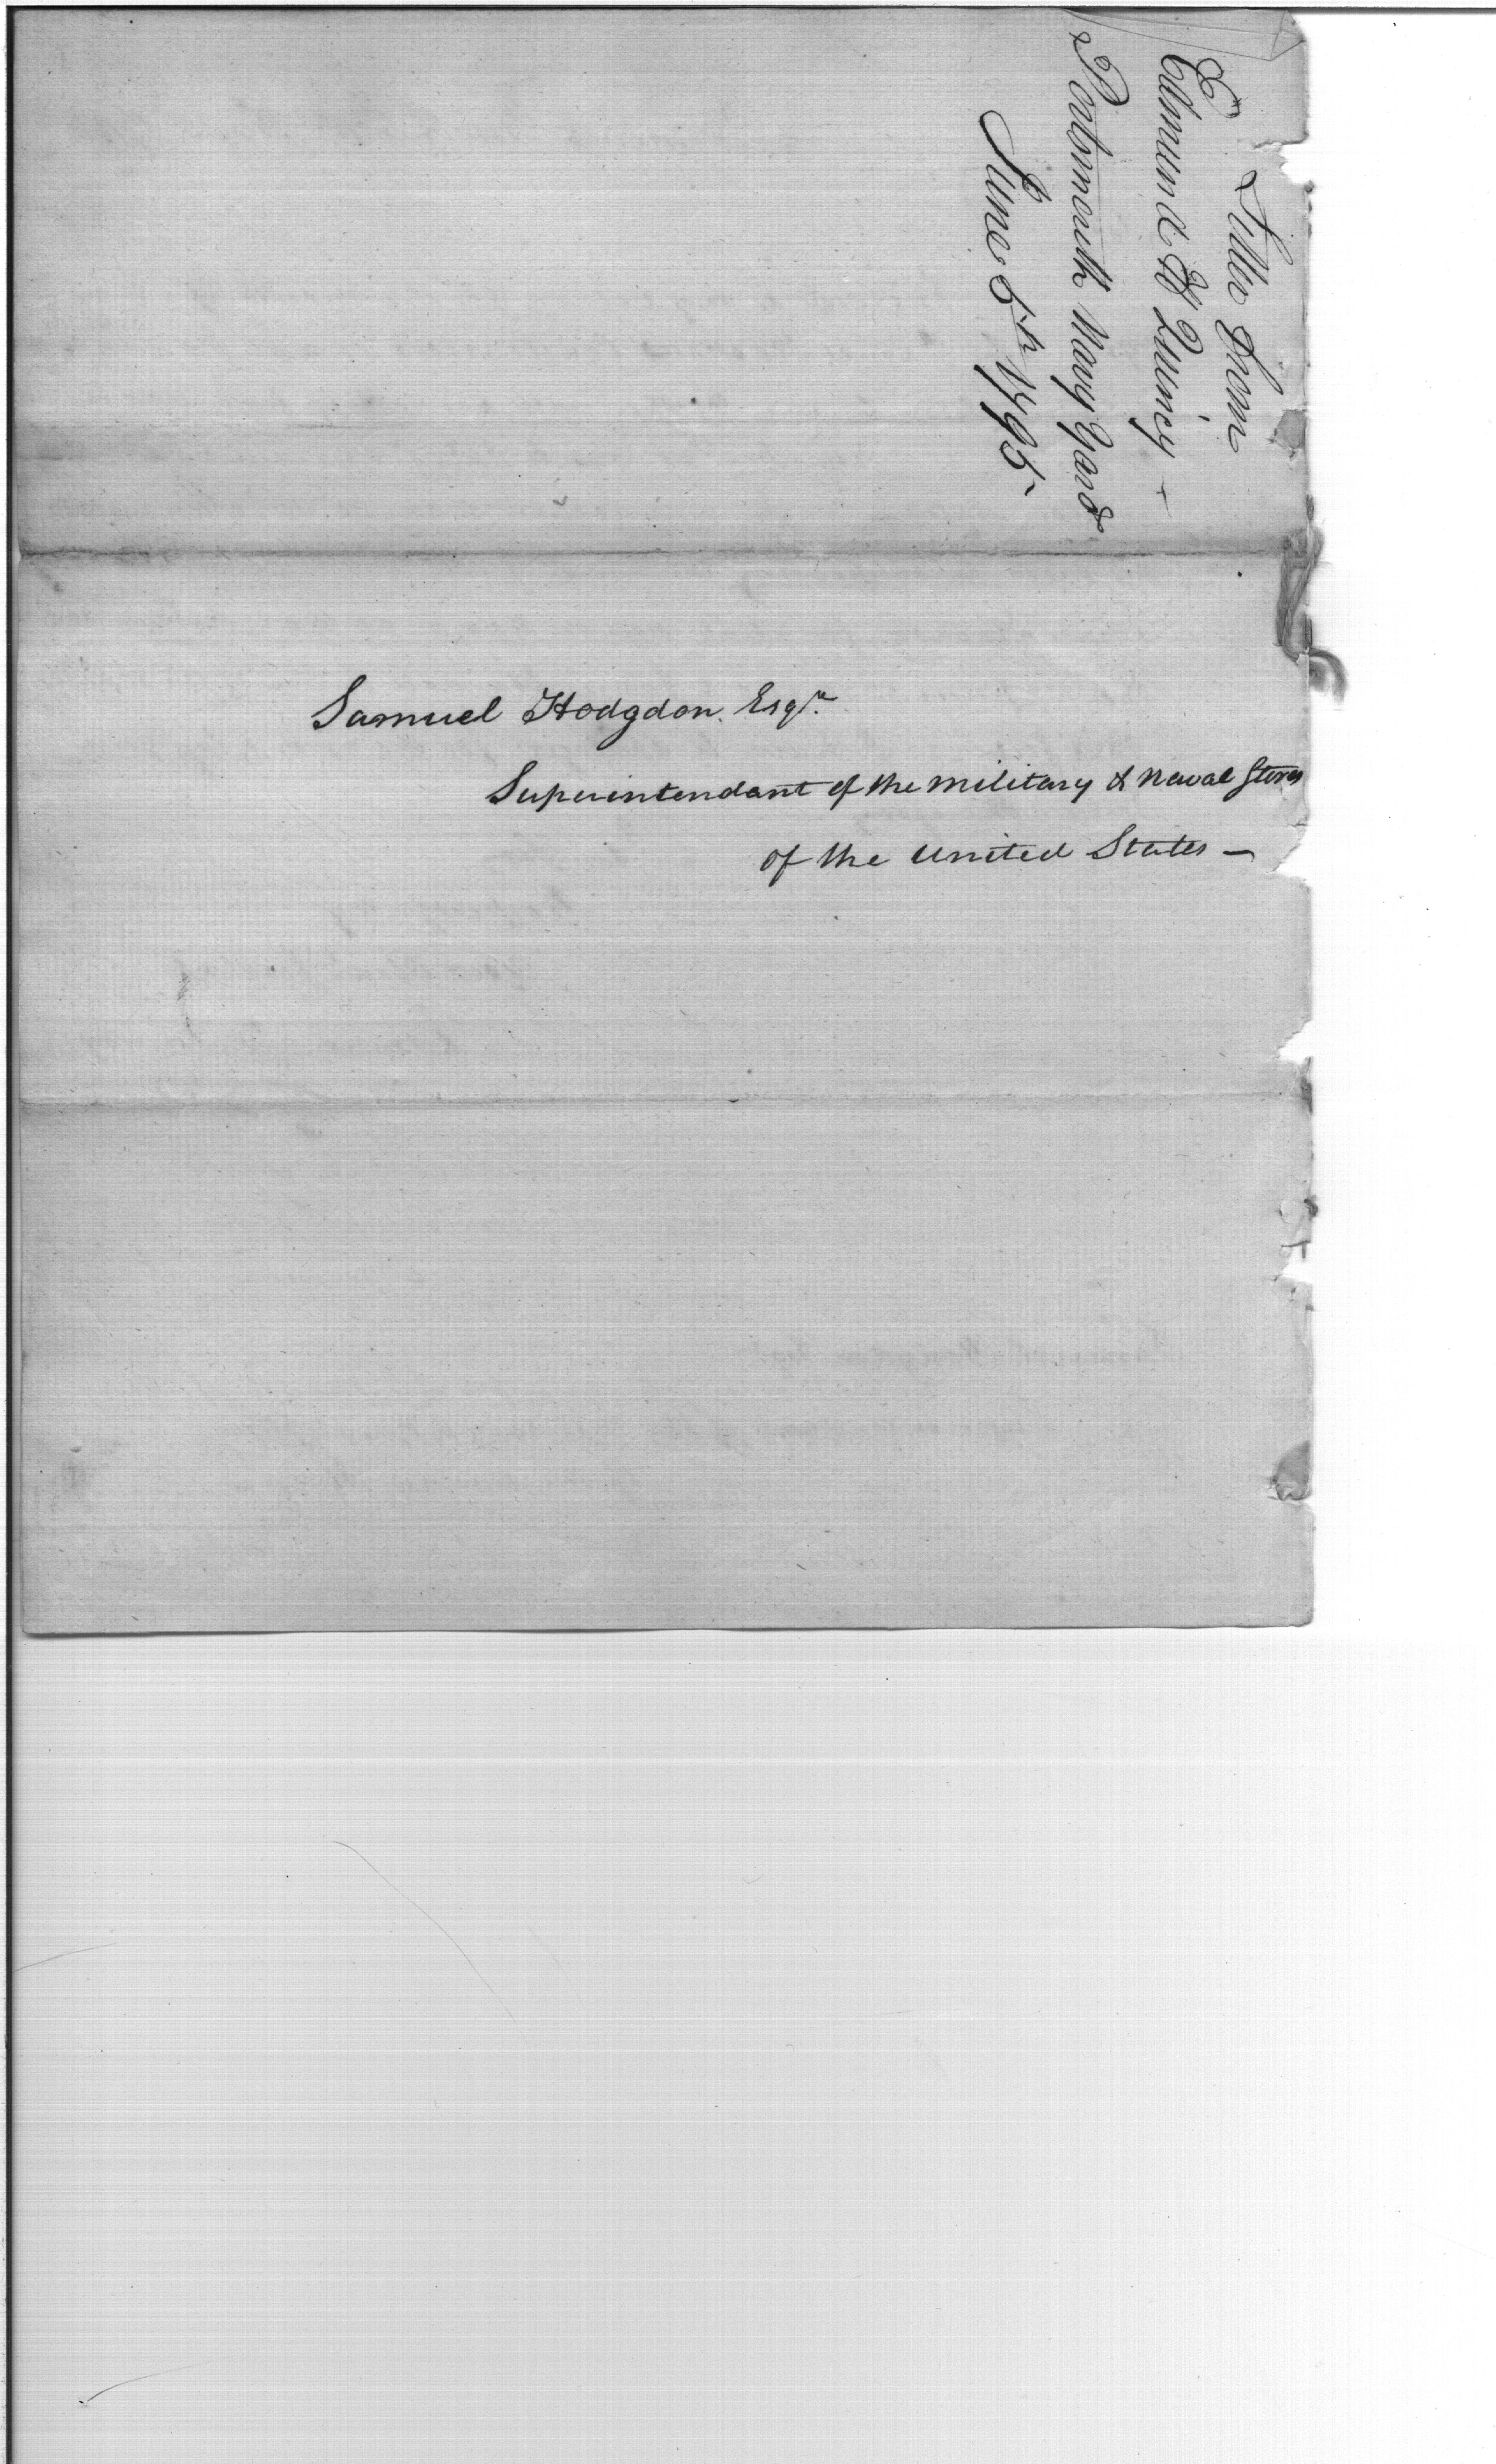 Letter from
Edmund H Quincy -
Portsmouth Navy Yard
June 5th 1795
Samuel Hodgdon. Esqr.
Superintendant of the Military & Naval Stores
of the United States -